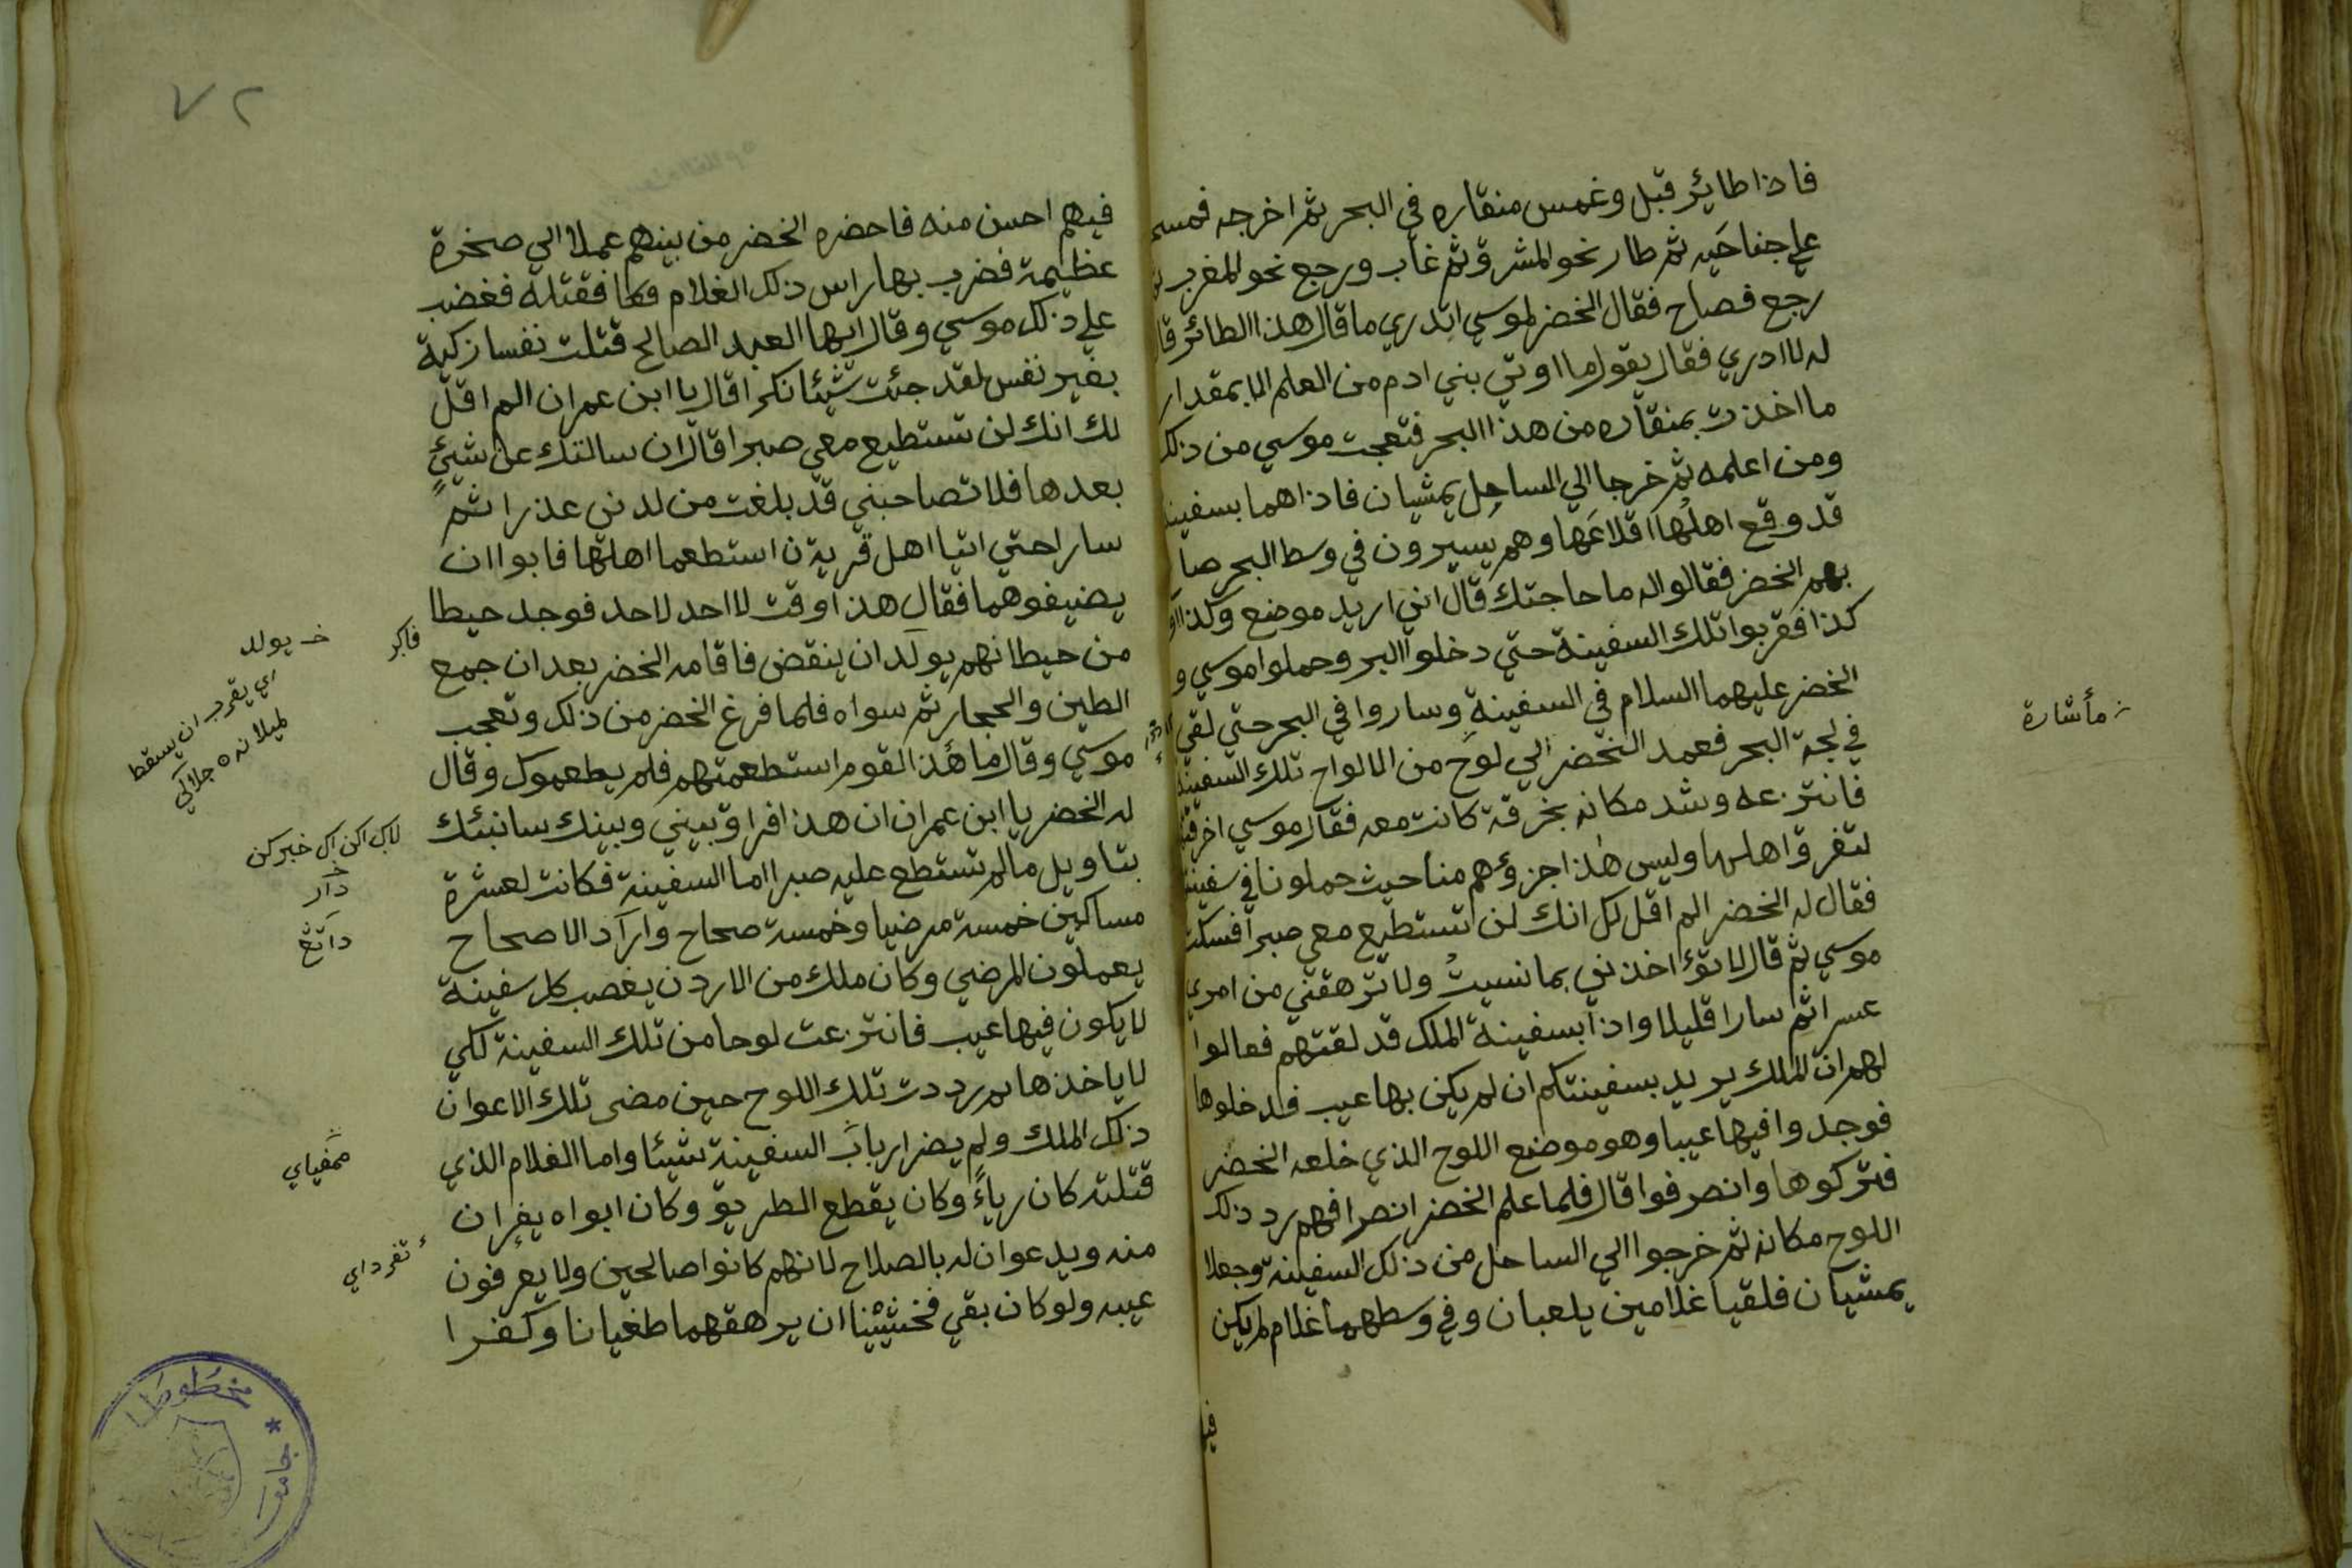 فاذا طائر قبل وغمس منقاره في البحر ثم اخرجه فمسح
علي جناحيه ثم طار نحو المشرق ثم غاب ورجع نحو المغرب
رجع فصاح فقال الخضر لموسي اتدري ما قال هذا الطائر قال
له لا ادري فقال يقول ما اوتي بني ادم من العلم الا بمقدار
ما اخذت بمنقاره من هذا البحر فتعجت موسي من ذلك
ومن اعلمه ثم خرجا الي الساحل يمشيان فاذا هما بسفينة
قد وقع اهلها اقلاعها وهم يسيرون في وسط البحر صا
بهم الخضر فقالوا له ما حاجتك قال انني اريد موضع وكذا
كذا فقربوا تلك السفينة حتي دخلوا البر وحملوا موسي و
الخضر عليهما السلام في السفينة وساروا في البحر حتي لقي
في لجة البحر فعمد الخضر الي لوح من الالواح تلك السفينة
فانتزعه وشد مكانه بخرقة كانت معه فقال موسي اخرقتها
لتفرق اهلها وليس هذا جزؤهم منا حيث حملونا في سفينة
فقال له الخضر الم اقل لك انك لن تستطيع معي صبرا فسكت
موسي ثم قال لا تؤاخذني بما نسيت ولا ترهقني من امري
عسرا ثم سارا قليلا واذا بسفينة الملك قد لقتهم فعالوا
لهم ان الملك يريد بسفينتكم ان لم يكن بها عيب فدخلوها
فوجدوا فيها عيبا وهو موضع اللوح الذي خلعه الخضر
فتركوها وانصرفوا قال فلما علم الخضر انصرافهم رد ذلك
اللوح مكانه ثم خرجوا الي الساحل من ذلك السفينة وجعلا
يمشيان فلقيا غلامين يلعبان وفي وسطهما غلام لم يكن
مأشارة
٧٢
فيهم احسن منه فاحضره الخضر من بينهم عملا الي صخرة
عظيمة فضرب بها راس ذلك الغلام فقتله فغضب
علي ذلك موسي وقال ايها العبد الصالح قتلت نفسا زكية
بغير نفس لقد جئت شيئا نكرا قال يا ابن عمران الم اقل
لك انك لن تستطيع معي صبرا قال ان سالتك عن شيئ
بعدها فلا تصاحبني قد بلغت من لدني عذرا ثم
سارا حتي اتيا اهل قرية ن استطعما اهلها فابوا ان
يضيفوهما فقال هذا وقت لا احد لاحد فوجد حيطا
من حيطانهم يولد ان ينقض فاقامه الخضر بعد ان جمع
الطين والحجار ثم سواه فلما فرغ الخضر من ذلك وتعجب
موسي وقال ما هذا القوم استطعمتهم فلم يطعموك وقال
له الخضر يا ابن عمران ان هذا فراق بيني وبينك سانبئك
بتاويل مالم تستطع عليه صبرا اما السفينة فكانت لعشرة
مساكين خمسة مرضيا وخمسة صحاح واراد الاصحاح
يعملون المرضي وكان ملك من الاردن يغصب كل سفينة
لا يكون فيها عيب فانتزعت لوحا من تلك السفينة لكي
لا ياخذها ثم رددت تلك اللوح حين مضى تلك الاعوان
ذلك الملك ولم يضر ارباب السفينة شيئا واما الغلام الذي
قتلته كان رياء وكان يقطع الطريق وكان ابواه يفران
منه ويدعوان له بالصلاح لانهم كانوا صالحين ولا يعرفون
عيبه ولو كان بقي فخشينا ان يرهقهما طغيانا وكفرا
خـ يولد
اي يقرب ان يسقط
لاكي اكن اكي خبركن
دار
داتڠ
مخطوطا
جامعة